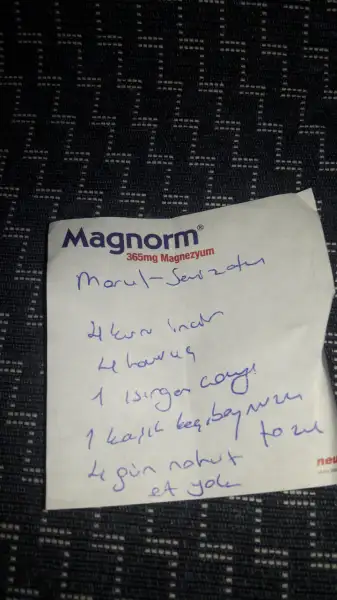 Magnorm®
365mg Magnezyum
Marul - Semizotu
4 kuru incir
4 havuç
1 ısırgan çayı
1 kaşık keçiboynuzu
tozu
4 gün nohut
et yok